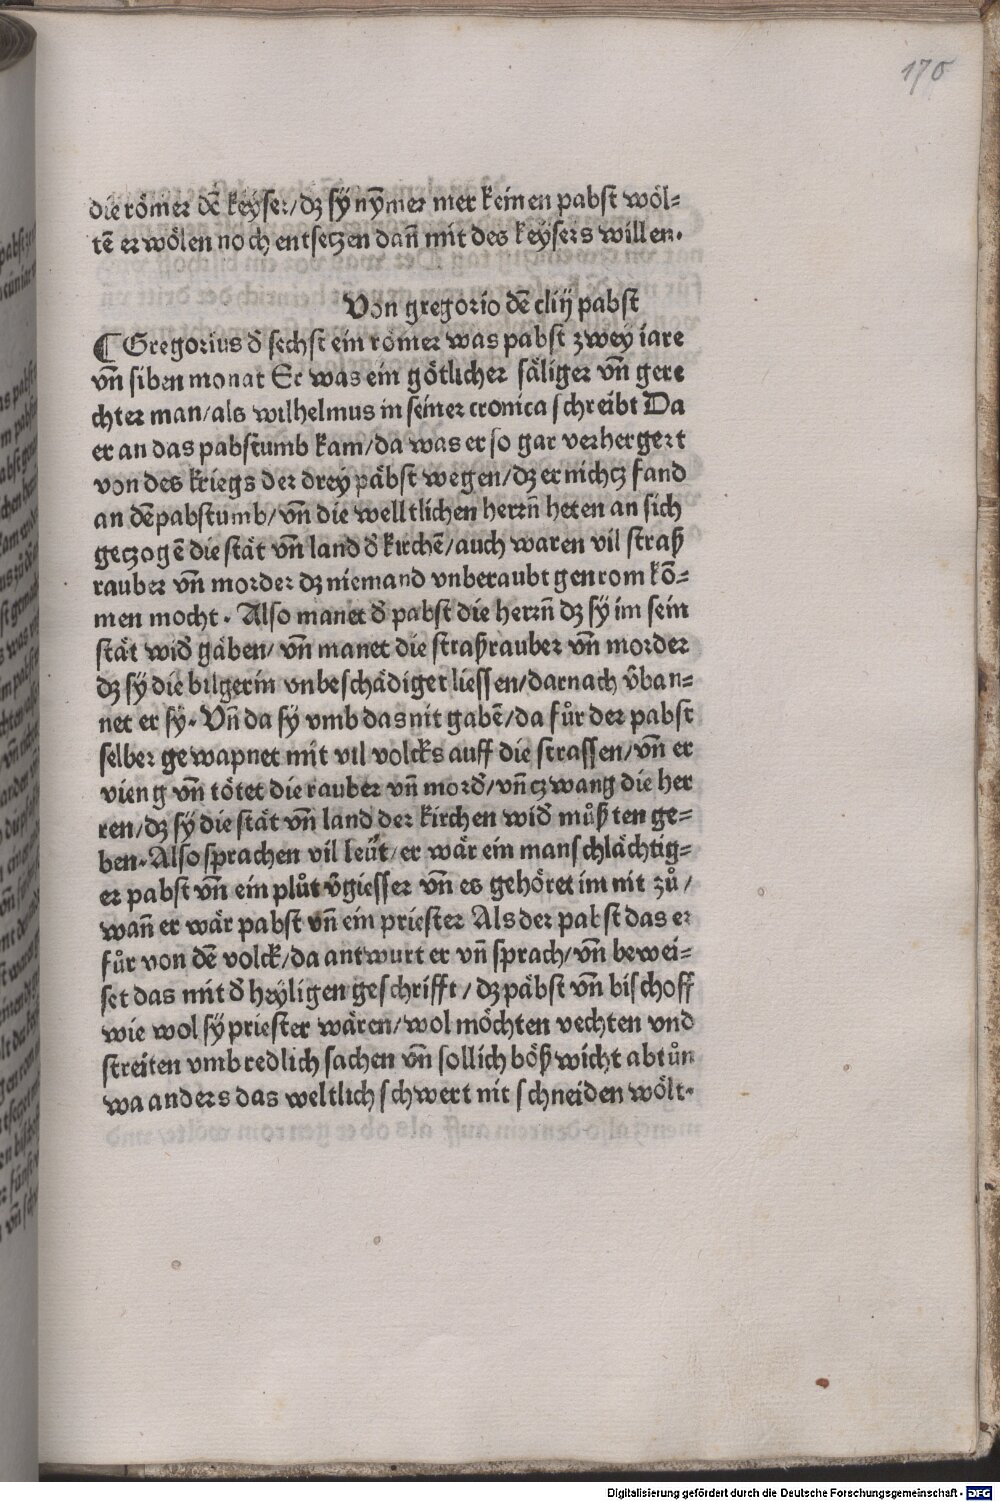 170
die römer dē keyser/dz sÿ nÿmer mer keinen pabst wöl-
tē erwölen noch entsetzen dañ mit des keÿsers willen.
Von gregorio dē cliij pabst
¶ Gregorius d̄ sechst ein römer was pabst zwey iare
vñ siben monat Er was ein götlicher säliger vñ gere
chter man/als wilhelmus in seiner cronica schreibt Da
er an das pabstumb kam/da was er so gar verhergert
von des kriegs der drey päbst wegen/dz er nichcz fand
an dē pabstumb/vñ die welltlichen herrñ heten an sich
geczogē die stät vñ land d̄ kirchē/auch waren vil straß
rauber vñ morder dz niemand vnberaubt gen rom kō-
men mocht. Also manet d̄ pabst die herrñ dz sÿ im sein
stät wid̄ gäben/vñ manet die straßrauber vñ morder
dz sÿ die bilgerin vnbeschädiget liessen/darnach v̄ban-
net er sÿ. Vñ da sÿ vmb das nit gabē/da fůr der pabst
selber gewapnet mit vil volcks auff die strassen/vñ er
vieng vñ tötet die rauber vñ mord̄/vñ czwang die her
ren/dz sÿ die stät vñ land der kirchen wid̄ můßten ge-
ben. Also sprachen vil leüt/er wär ein manschlächtig-
er pabst vñ ein plůt v̄giesser vñ es gehöret im nit zů/
wañ er wär pabst vñ ein priester Als der pabst das er
fůr von dē volck/da antwurt er vñ sprach/vñ bewei-
set das mit d̄ heyligen geschrifft/dz päbst vñ bischoff
wie wol sÿ priester wären/wol möchten vechten vnd
streiten vmb redlich sachen vñ sollich bößwicht abtůn
wa anders das weltlich schwert nit schneiden wölt.
Digitalisierung gefördert durch die Deutsche Forschungsgemeinschaft - DFG